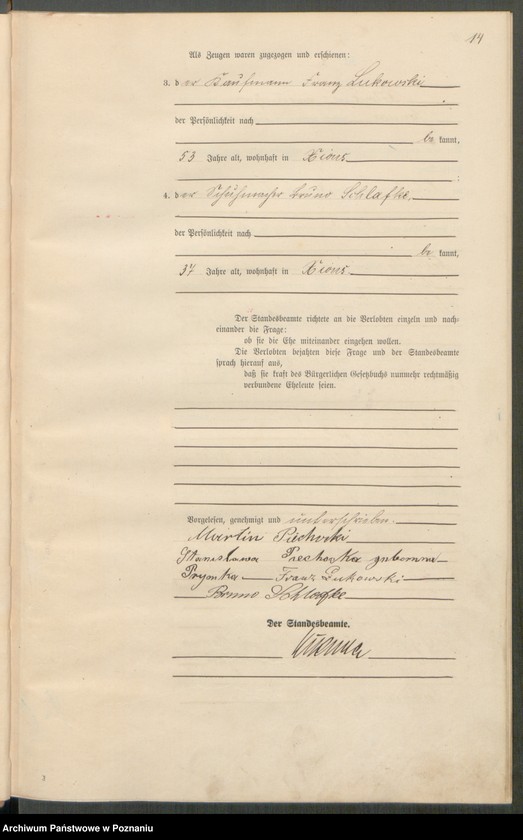 14
Als Zeugen waren zugezogen und erschienen:
3. der Kaufmann Franz Lukowski
der Persönlichkeit nach
be kannt,
53 Jahre alt, wohnhaft in Xions
;
4. der Schuhmacher Bruno Schlafke,
der Persönlichkeit nach
be kannt,
37 Jahre alt, wohnhaft in Xions
Der Standesbeamte richtete an die Verlobten einzeln und nach-
einander die Frage:
ob sie die Ehe miteinander eingehen wollen.
Die Verlobten bejahten diese Frage und der Standesbeamte
sprach hierauf aus,
daß sie kraft des Bürgerlichen Gesetzbuchs nunmehr rechtmäßig
verbundene Eheleute seien.
Vorgelesen, genehmigt und unterschrieben.
Martin
Stanislawa geborene
Franz Lukowski
Bruno Schlafke
Der Standesbeamte.
Archiwum Państwowe w Poznaniu